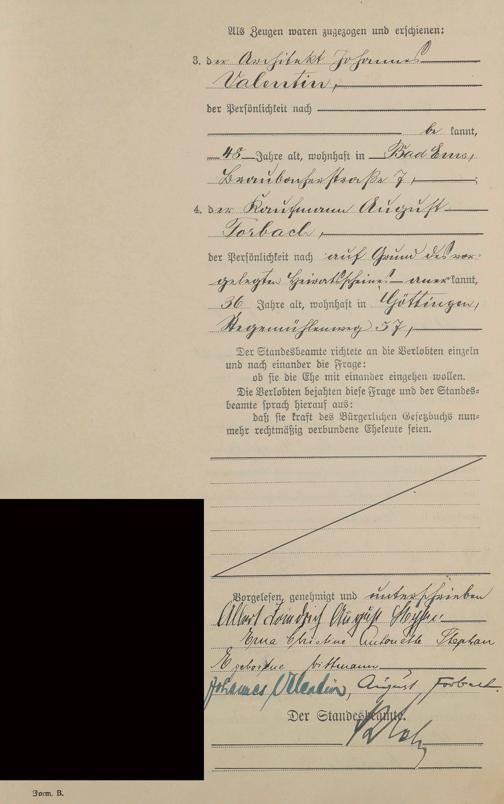 Als Zeugen waren zugezogen und erschienen:
3. der Architekt Johannes
Valentin,
der Persönlichkeit nach
be kannt,
48 Jahre alt, wohnhaft in Bad Ems,
Braubacherstraße 7,
4. der Kaufmann August
Forbach,
der Persönlichkeit nach auf Grund des vor-
gelegten Heiratsscheines aner kannt,
56 Jahre alt, wohnhaft in Göttingen,
Stegemühlenweg 57,
Der Standesbeamte richtete an die Verlobten einzeln
und nach einander die Frage:
ob sie die Ehe mit einander eingehen wollen.
Die Verlobten bejahten diese Frage und der Standes-
beamte sprach hierauf aus:
daß sie kraft des Bürgerlichen Gesetzbuchs nun-
mehr rechtmäßig verbundene Eheleute seien.
Vorgelesen, genehmigt und unterschrieben
Albert Friedrich August
Erna Christine Antonette Stephan
geborene Wittmann
Johannes Valentin, August Forbach.
Der Standesbeamte.
Form. B.